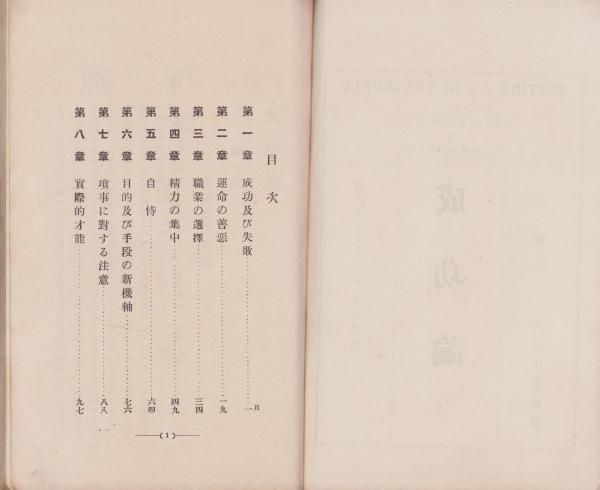 目次
第一章 成功及び失敗……一頁
第二章 運命の善悪……一九
第三章 職業の選擇……三四
第四章 精力の集中……四九
第五章 自恃……六四
第六章 目的及び手段の新機軸……七六
第七章 瑣事に對する注意……八八
第八章 實際的才能……九七
(1)
GETTING ON IN THE WORLD
成功論